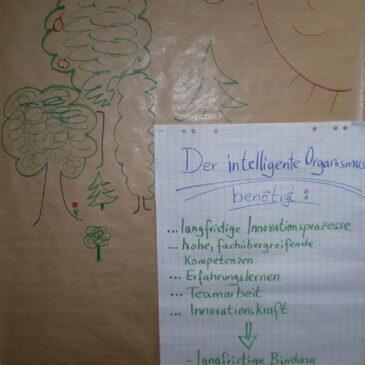 Der intelligente Organismus
benötigt:
...langfristige Innovationsprozesse
... hohe, fachübergreifende
Kompetenzen
... Erfahrungslernen
... Teamarbeit
... Innovationskraft
- langfristige Bindung